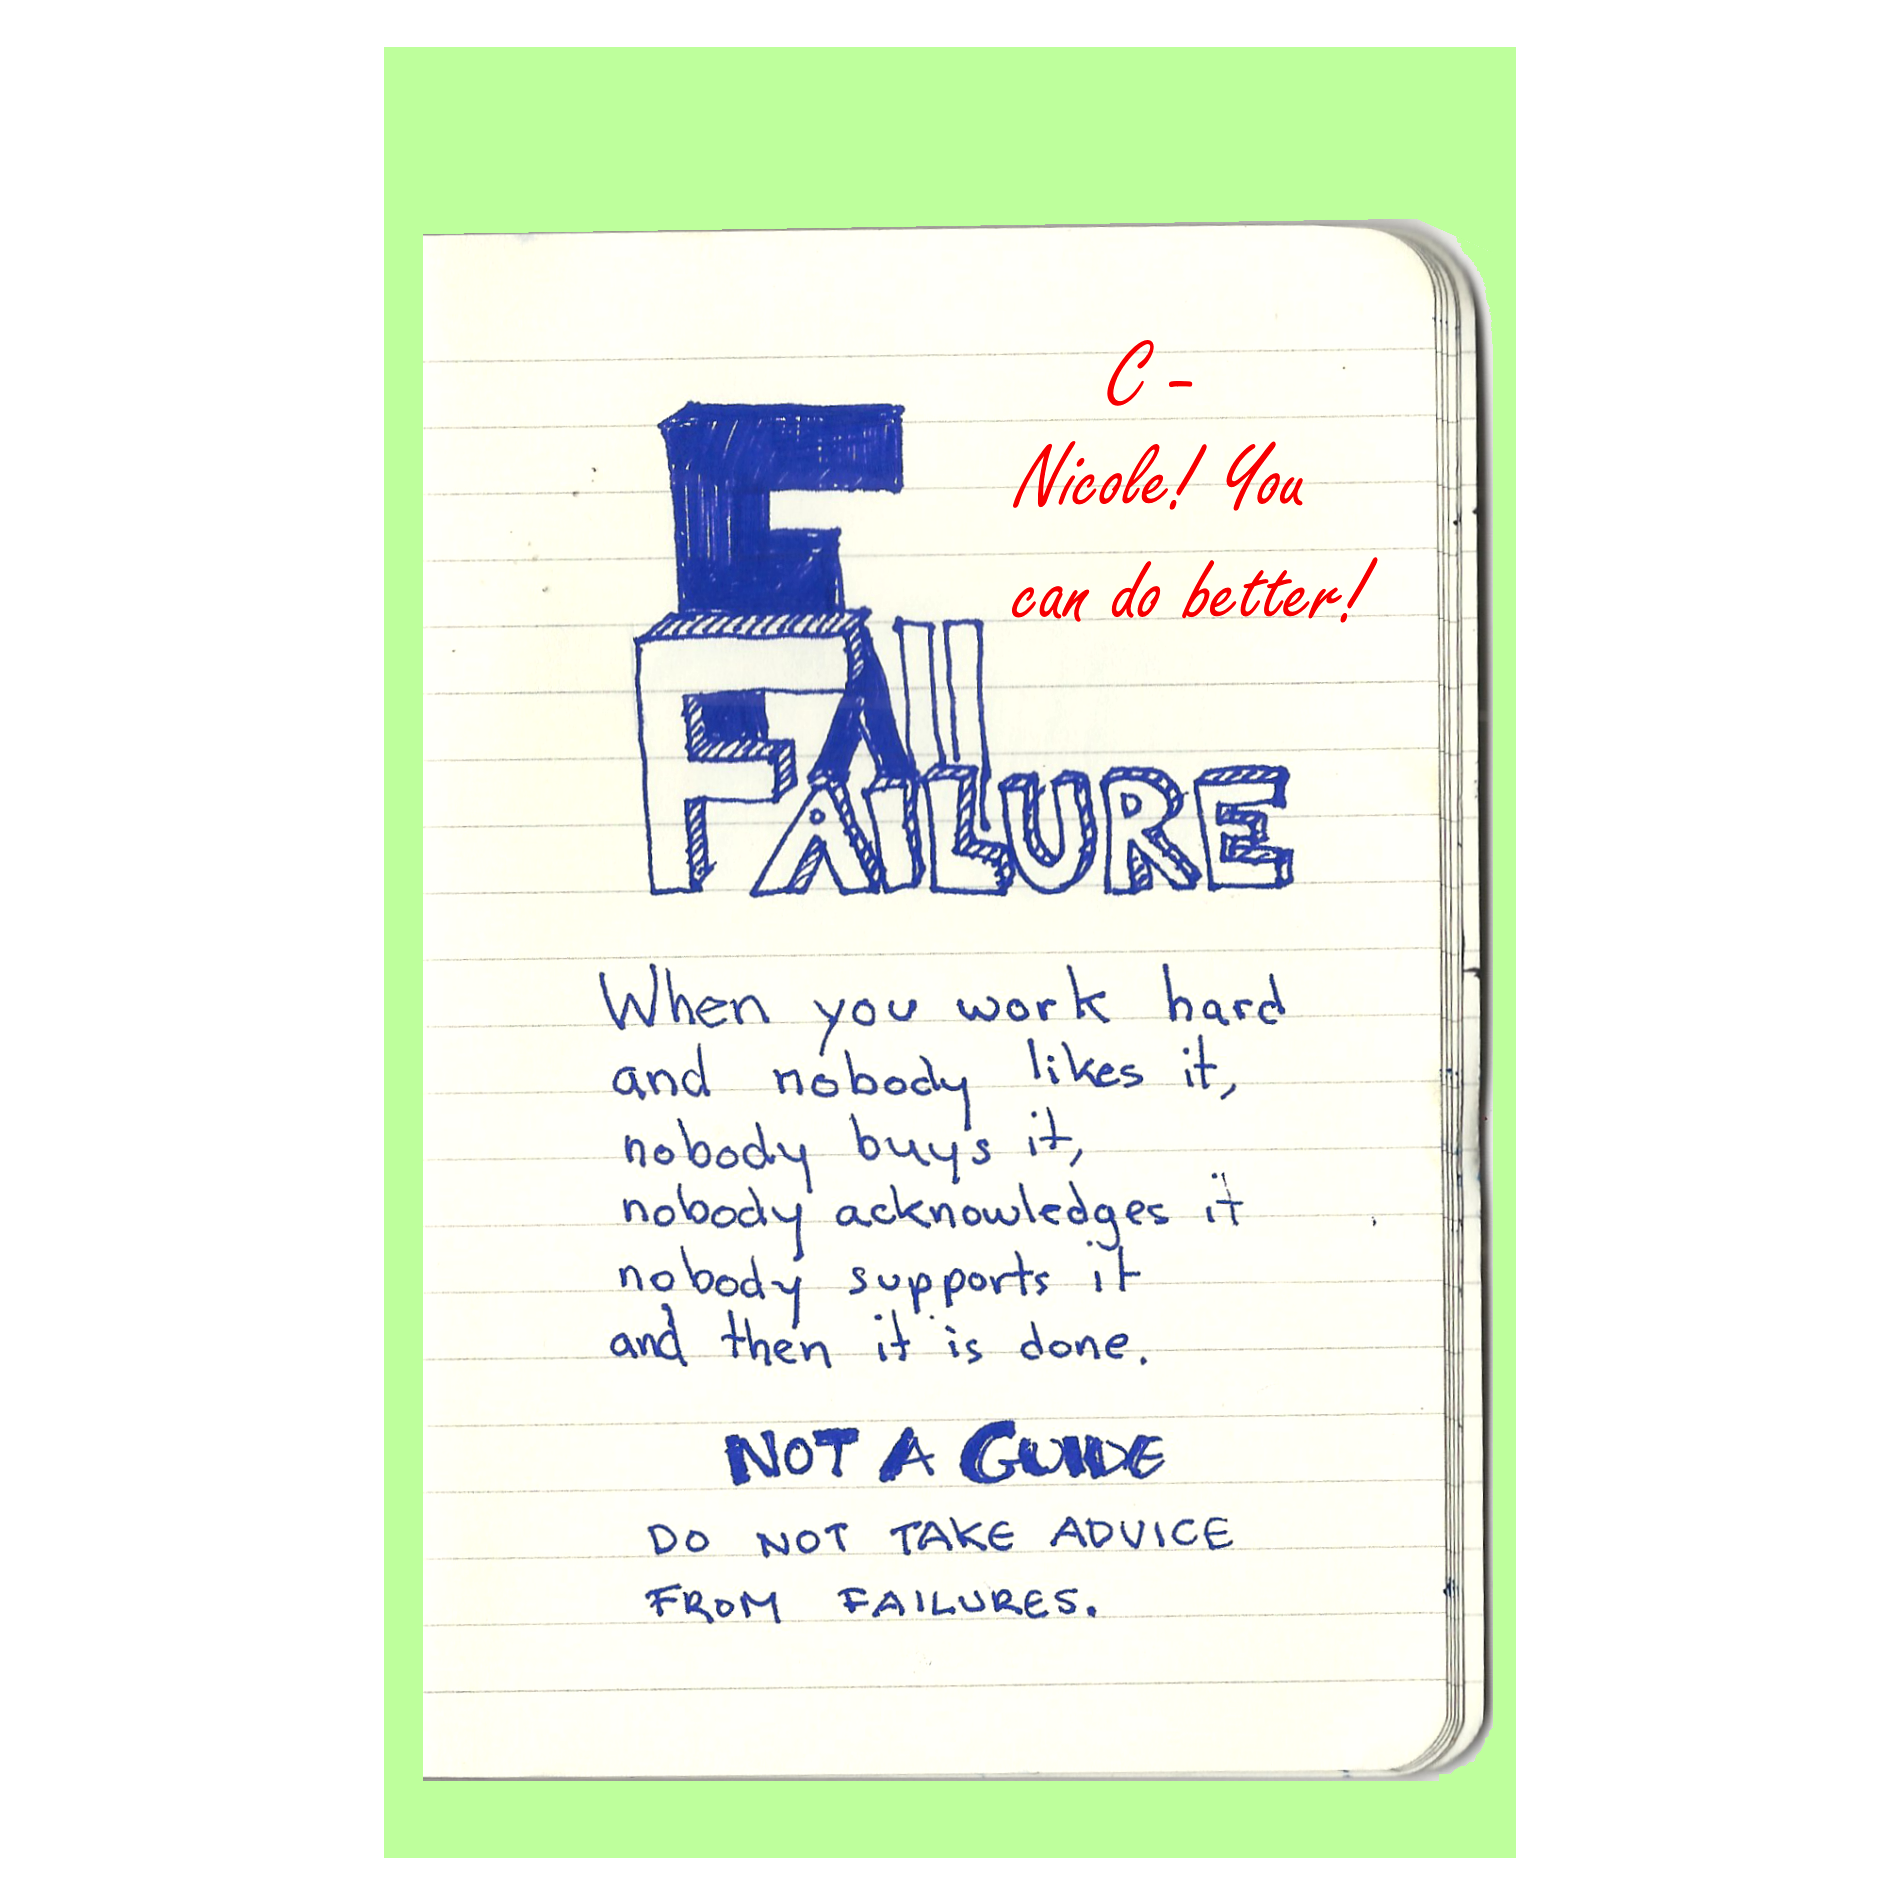 C -
Nicole! You
can do better!
F
FAll
FAILURE
When you work hard
and nobody likes it,
nobody buys it,
nobody acknowledges it
nobody supports it
and then it is done.
NOT A GUIDE
DO NOT TAKE ADVICE
FROM FAILURES.